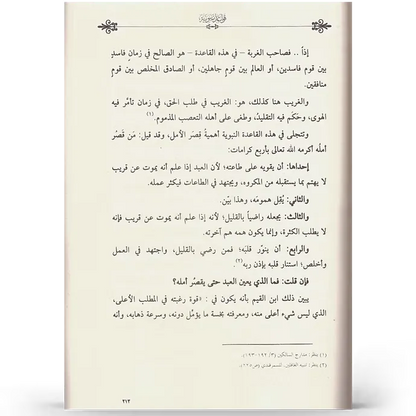 قواعد نبوية
إذاً .. فصاحب الغربة – في هذه القاعدة – هو الصالح في زمانٍ فاسدٍ
بين قوم فاسدين، أو العالم بين قوم جاهلين، أو الصادق المخلص بين قوم
منافقين.
والغريب هنا كذلك، هو: الغريب في طلب الحق، في زمان تأمّر فيه
الهوى، وحكم فيه التقليد، وطغى على أهله التعصب المذموم.(١)
وتتجلى في هذه القاعدة النبوية أهمية قِصر الأمل، وقد قيل: مَن قَصُر
أمله أكرمه الله تعالى بأربع كرامات:
إحداها: أن يقويه على طاعته؛ لأن العبد إذا علم أنه يموت عن قريب
لا يهتم بما يستقبله من المكروه، ويجتهد في الطاعات فيكثر عمله.
والثاني: يُقِل همومَه، وهذا بيّن.
والثالث: يجعله راضياً بالقليل؛ لأنه إذا علم أنه يموت عن قريب فإنه
لا يطلب الكثرة، وإنما يكون همه هم آخرته.
والرابع: أن ينوِّر قلبَه؛ فمن رضي بالقليل، واجتهد في العمل
وأخلص؛ استنار قلبه بإذن ربه(٢).
فإن قلت: فما الذي يعين العبد حتى يقصُر أمله؟
يبين ذلك ابن القيم بأنه يكون في : «قوة رغبته في المطلب الأعلى،
الذي ليس شيء أعلى منه، ومعرفته بخسة ما يؤمل دونه، وسرعة ذهابه، وأنه
(١) ينظر: مدارج السالكين (٣/ ١٩٢-١٩٣).
(٢) ينظر: تنبيه الغافلين، للسمرقندي (ص٢٢٥).
٢١٢